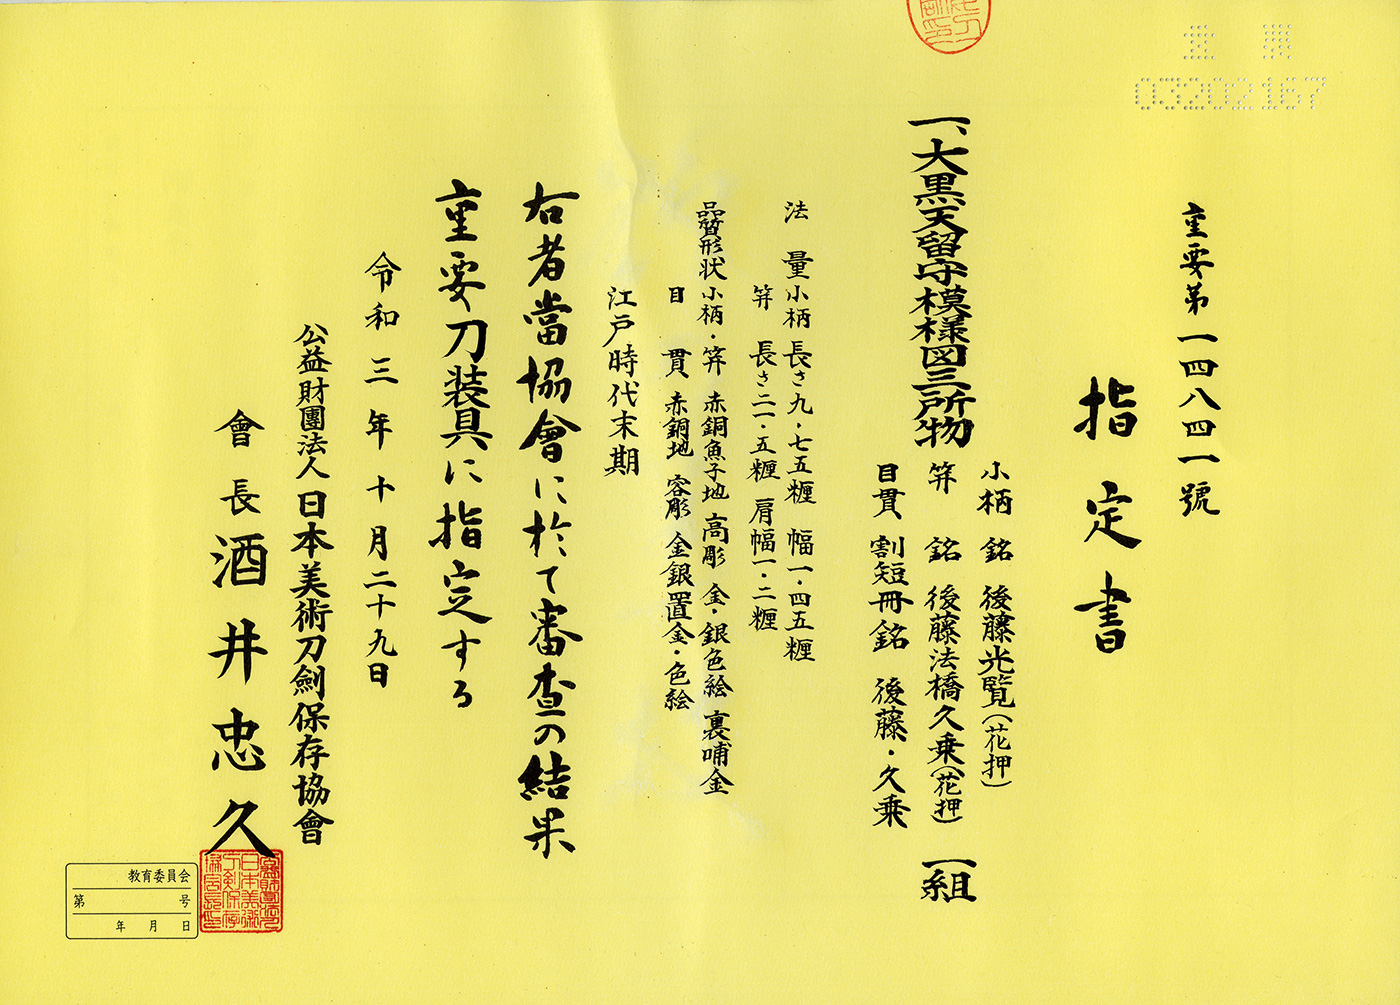 重要
03202167
重要第一四八四一號
指定書
一、大黒天留守模様図三所物 一組
小柄 銘 後藤光覧(花押)
笄 銘 後藤法橋久乗(花押)
目貫 割短冊銘 後藤・久乗
法量 小柄 長さ九・七五糎 幅一・四五糎
笄 長さ二一・五糎 肩幅一・二糎
品質形状 小柄・笄 赤銅魚子地 高彫 金・銀色絵 裏哺金
目貫 赤銅地 容彫 金銀置金・色絵
江戸時代末期
右者當協會に於て審査の結果
重要刀装具に指定する
令和三年十月二十九日
公益財團法人日本美術刀劍保存協會
會長 酒井忠久
教育委員会
第 号
年 月 日